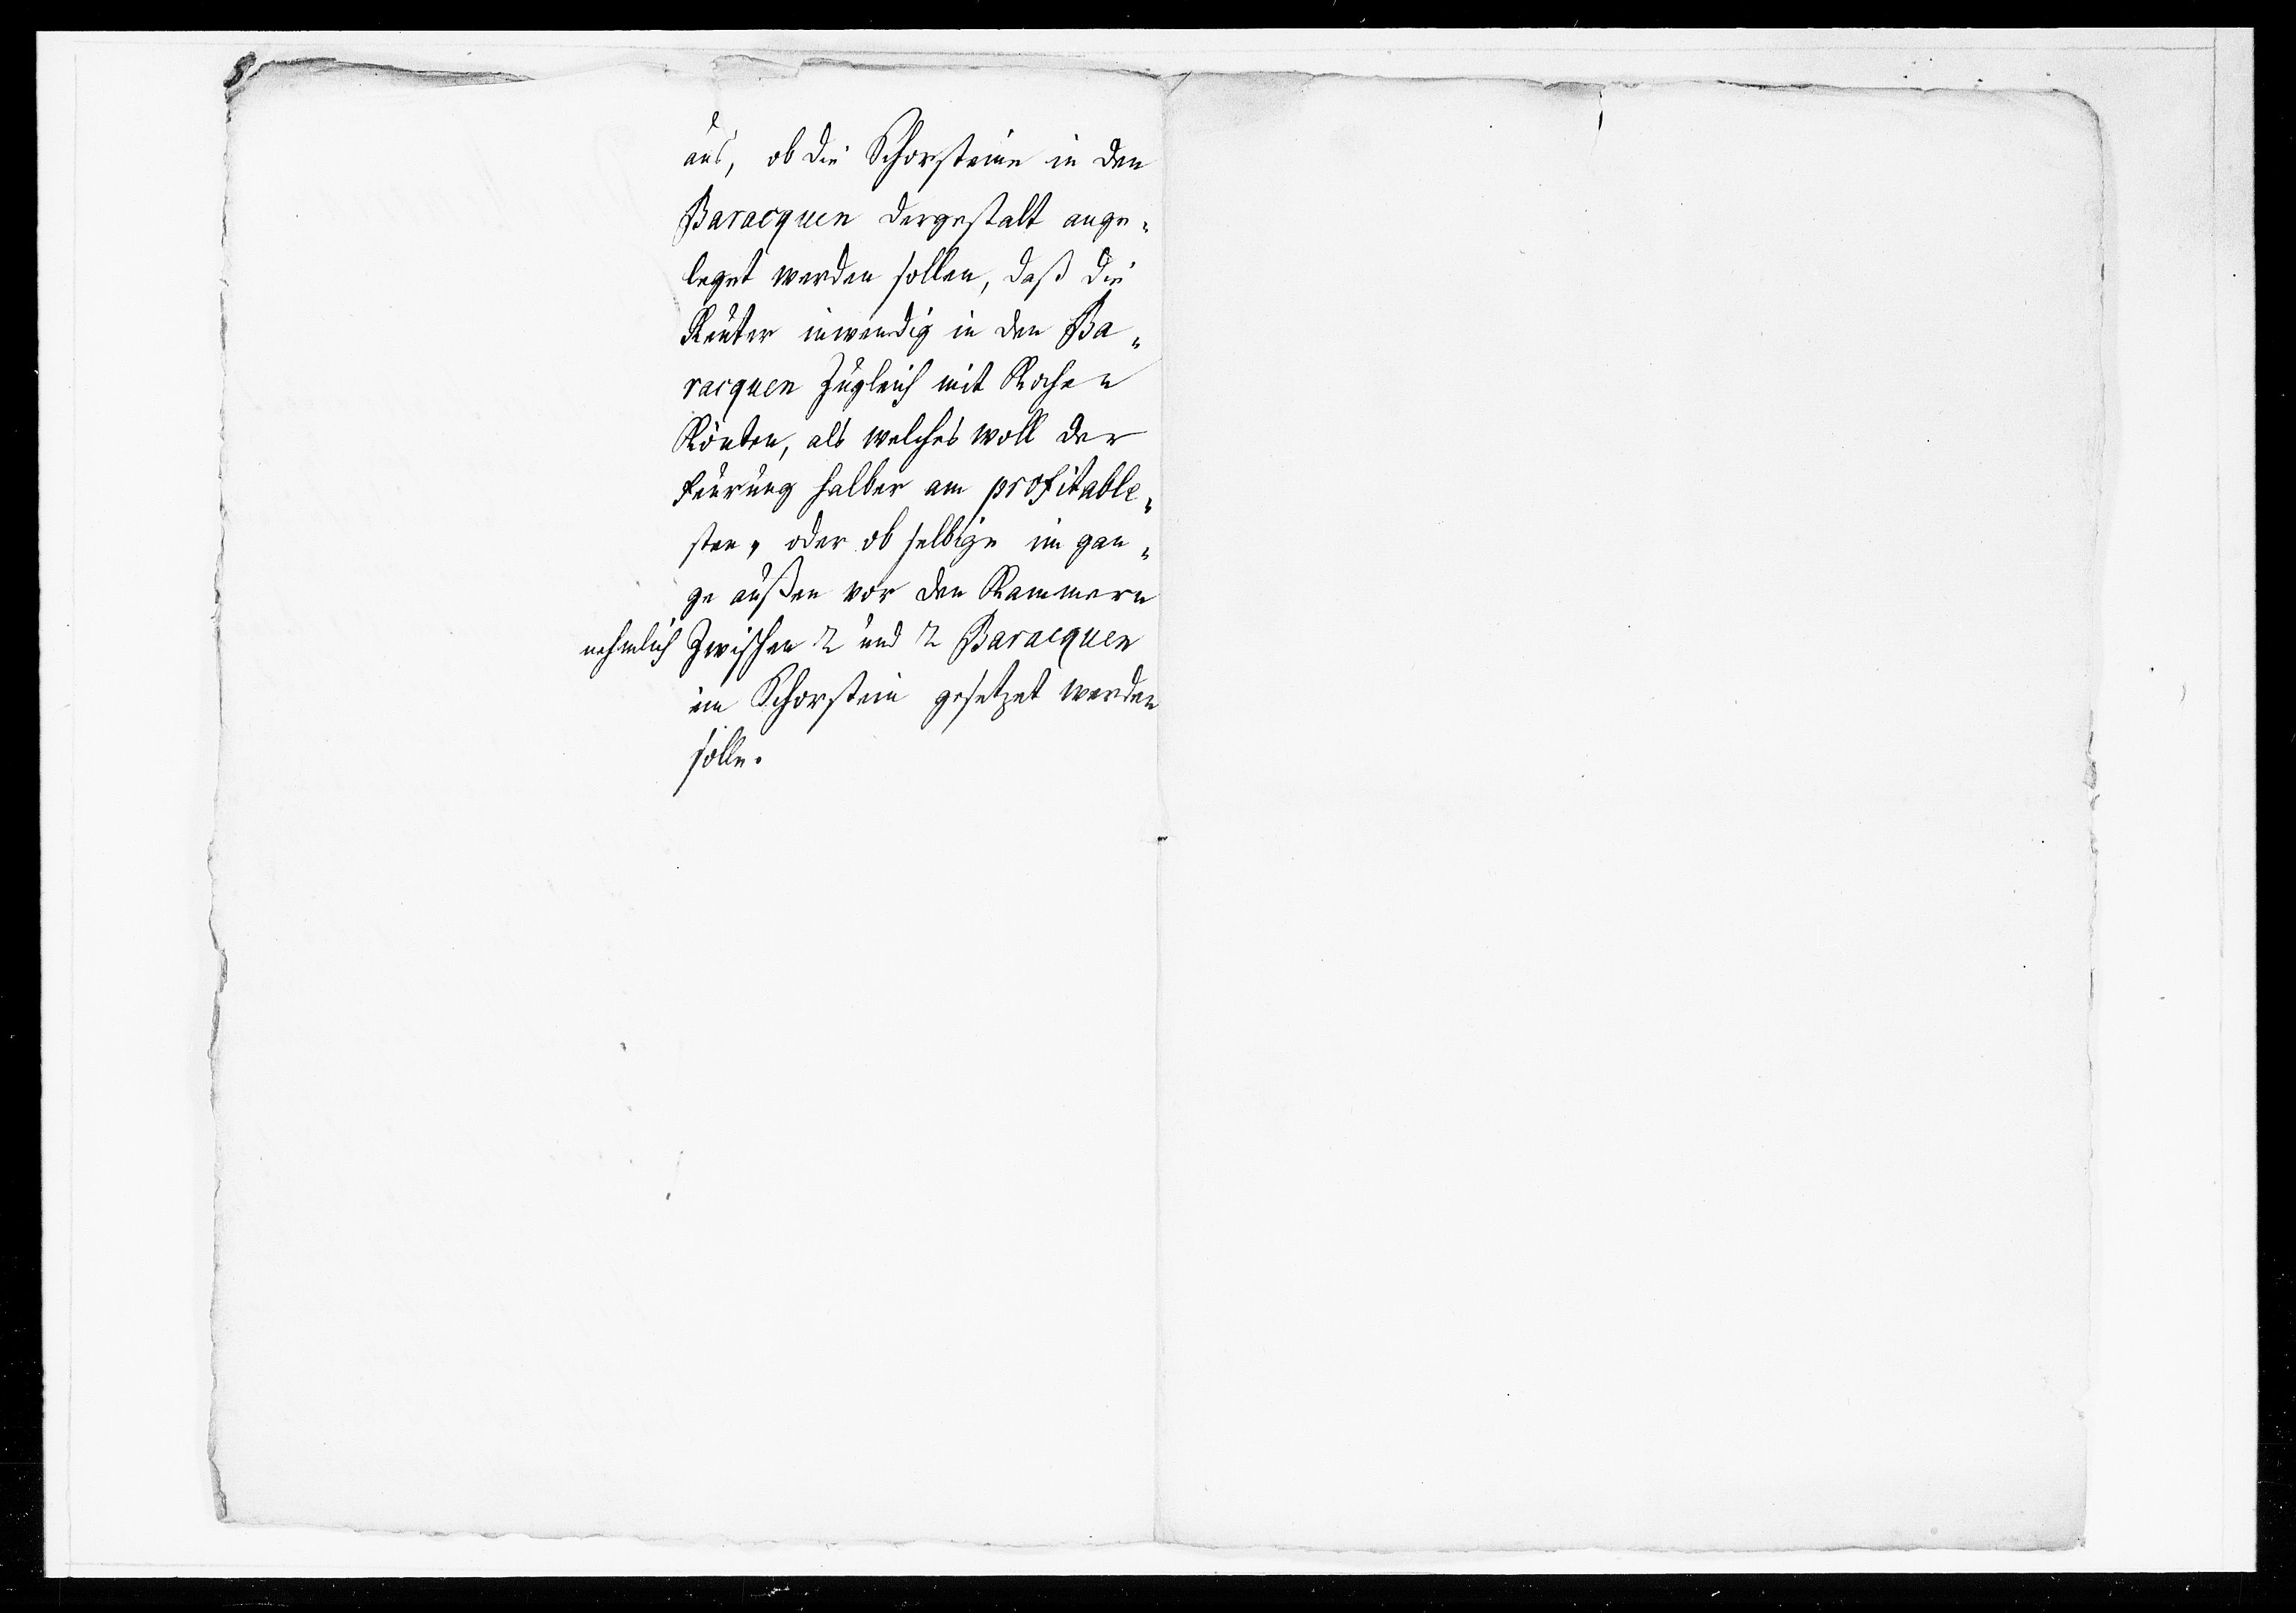 aus, ob die Schorsteine in den
Baracquen dergestalt ange-
leget werden sollen, daß die
Reuter inwendig in den Ba-
racquen zugleich mit Kochen
Könten, als welches woll der
feurung halber am profitable-
sten, oder ob selbige im gan-
ge außen vor den Kammern
nehmlich Zwischen 2 und 2 Baracquen
ein Schorstein gesetzet werden
solle.